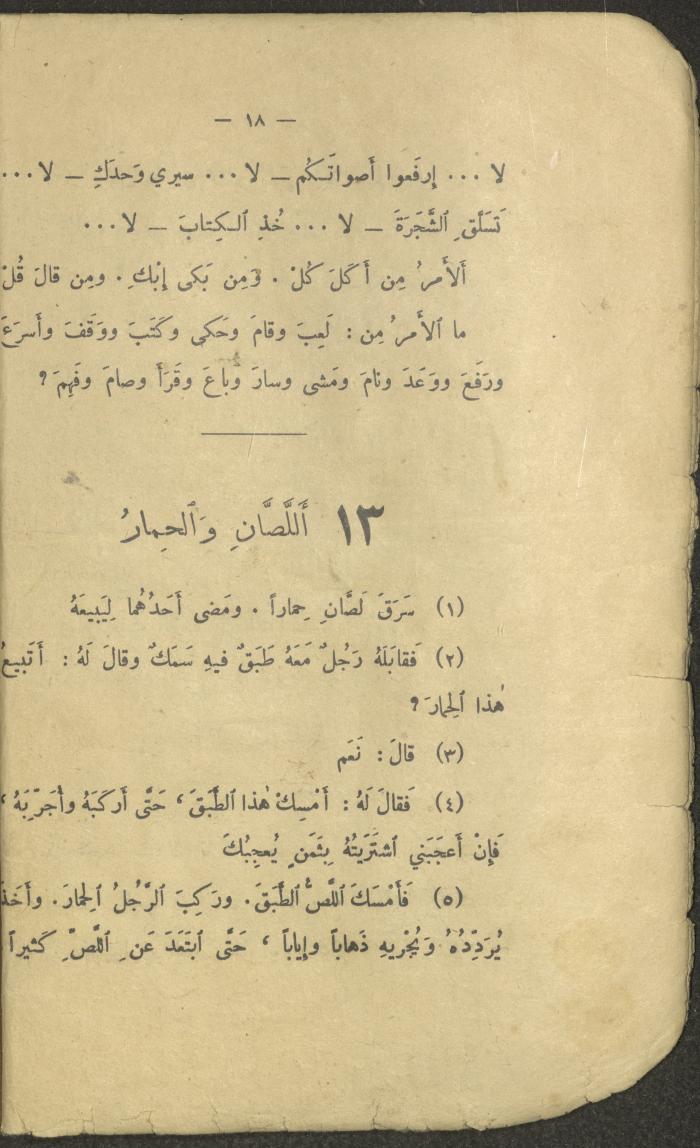 — ١٨ —
لا ... إِرفَعوا أَصواتَـكُم — لا ... سيري وَحدَكِ — لا ...
تَسَلَّقِ ٱلشَّجَرَةَ — لا ... خُذِ ٱلـكِتابَ — لا ...
أَلأَمرُ مِن أَكَلَ كُلْ . وَمِن بَكى إِبْكِ . ومِن قالَ قُلْ
ما ٱلأَمرُ مِن : لَعِبَ وقامَ وحَكى وكَتَبَ ووَقَفَ وأَسرَعَ
ورَفَعَ ووَعَدَ ونامَ ومَشى وسارَ وباعَ وقَرَأَ وصامَ وفَهِمَ ؟
١٣ أَللَّصَّانِ وَٱلحِمارُ
(١) سَرَقَ لَصَّانِ حِماراً . ومَضى أَحَدُهُما لِيَبيعَهُ
(٢) فَقابَلَهُ رَجُلٌ مَعَهُ طَبَقٌ فيهِ سَمَكٌ وقالَ لَهُ : أَتَبيعُ
هٰذا ٱلحِمارَ ؟
(٣) قالَ : نَعَم
(٤) فَقالَ لَهُ : أَمْسِكْ هٰذا ٱلطَّبَقَ ، حَتَّى أَركَبَهُ وأُجَرِّبَهُ ،
فَإِنْ أَعجَبَني ٱشتَرَيتُهُ بِثَمَنٍ يُعجِبُكَ
(٥) فَأَمْسَكَ ٱللَّصُّ ٱلطَّبَقَ . ورَكِبَ ٱلرَّجُلُ ٱلحِمارَ . وأَخَذَ
يُرَدِّدُهُ وَيُجْريهِ ذَهاباً وإِياباً ، حَتَّى ٱبتَعَدَ عَنِ ٱللَّصِّ كَثيراً